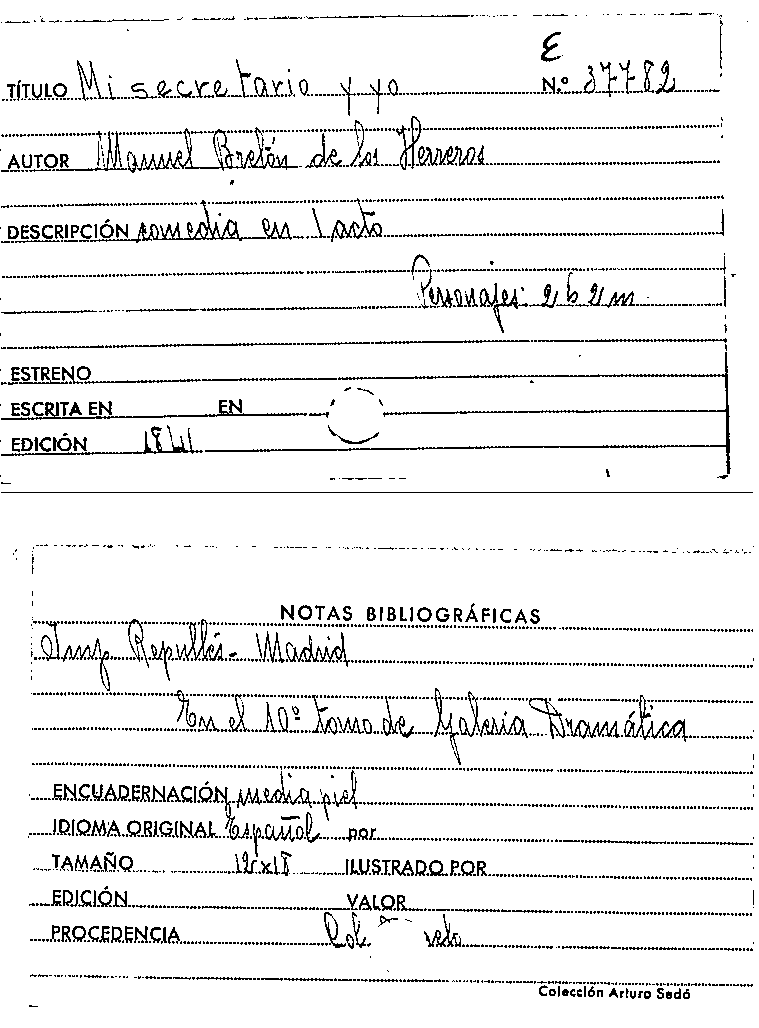 E
TÍTULO Mi secretario y yo N.º 37782
AUTOR Manuel Bretón de los Herreros
DESCRIPCIÓN comedia en 1 acto
Personajes: 2 h 2 m
ESTRENO
ESCRITA EN EN
EDICIÓN 1841
NOTAS BIBLIOGRÁFICAS
Imp Repullés - Madrid
En el 10º tomo de Galeria Dramática
ENCUADERNACIÓN media piel
IDIOMA ORIGINAL Español por
TAMAÑO 12x18 ILUSTRADO POR
EDICIÓN VALOR
PROCEDENCIA Col.
Colección Arturo Sedó